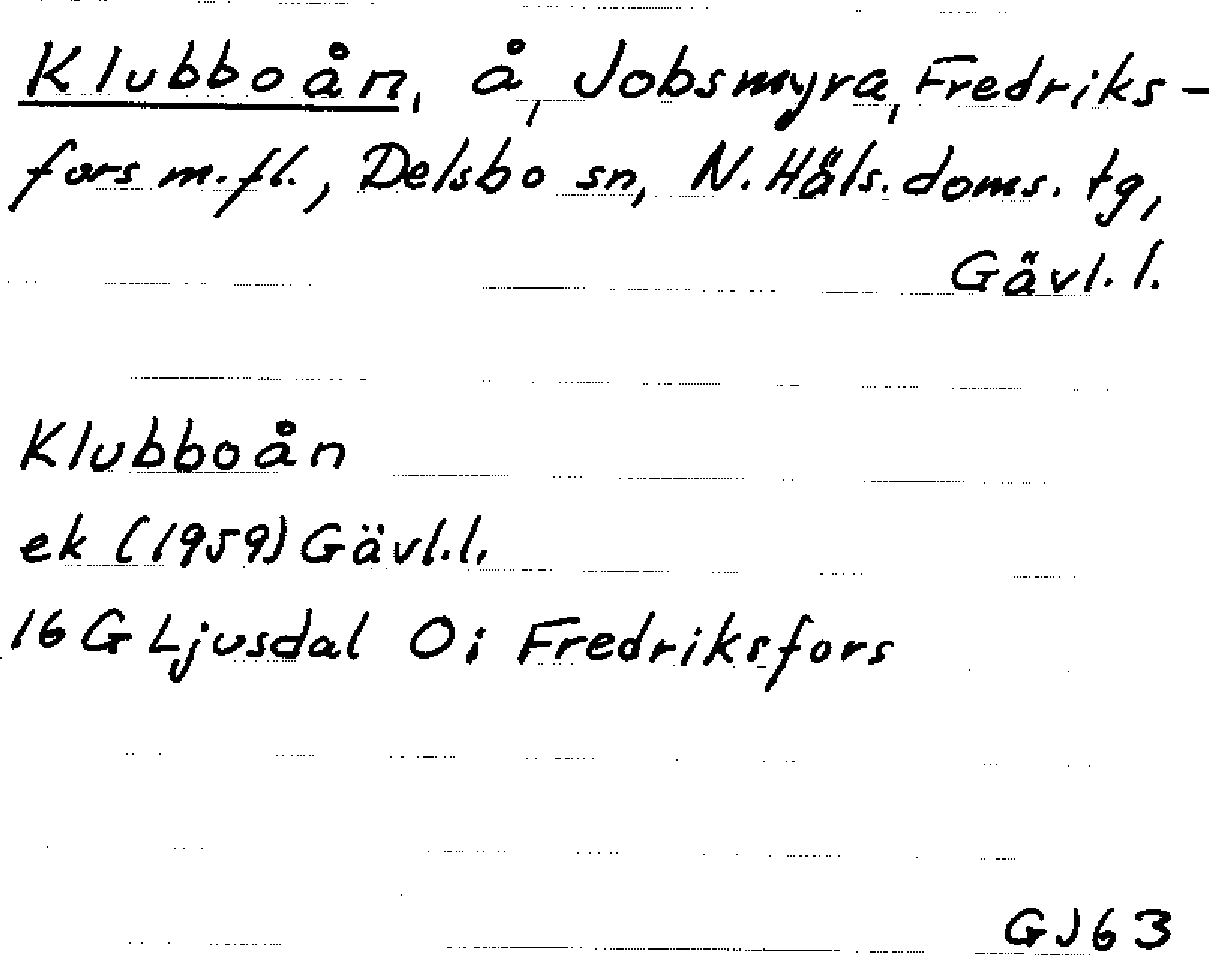 Klubboån, å, Jobsmyra, Fredriks-
fors m.fl., Delsbo sn, N. Häls. doms. tg,
Gävl. l.
Klubboån
ek (1959) Gävl.l.
16 G Ljusdal Oi Fredriksfors
GJ63